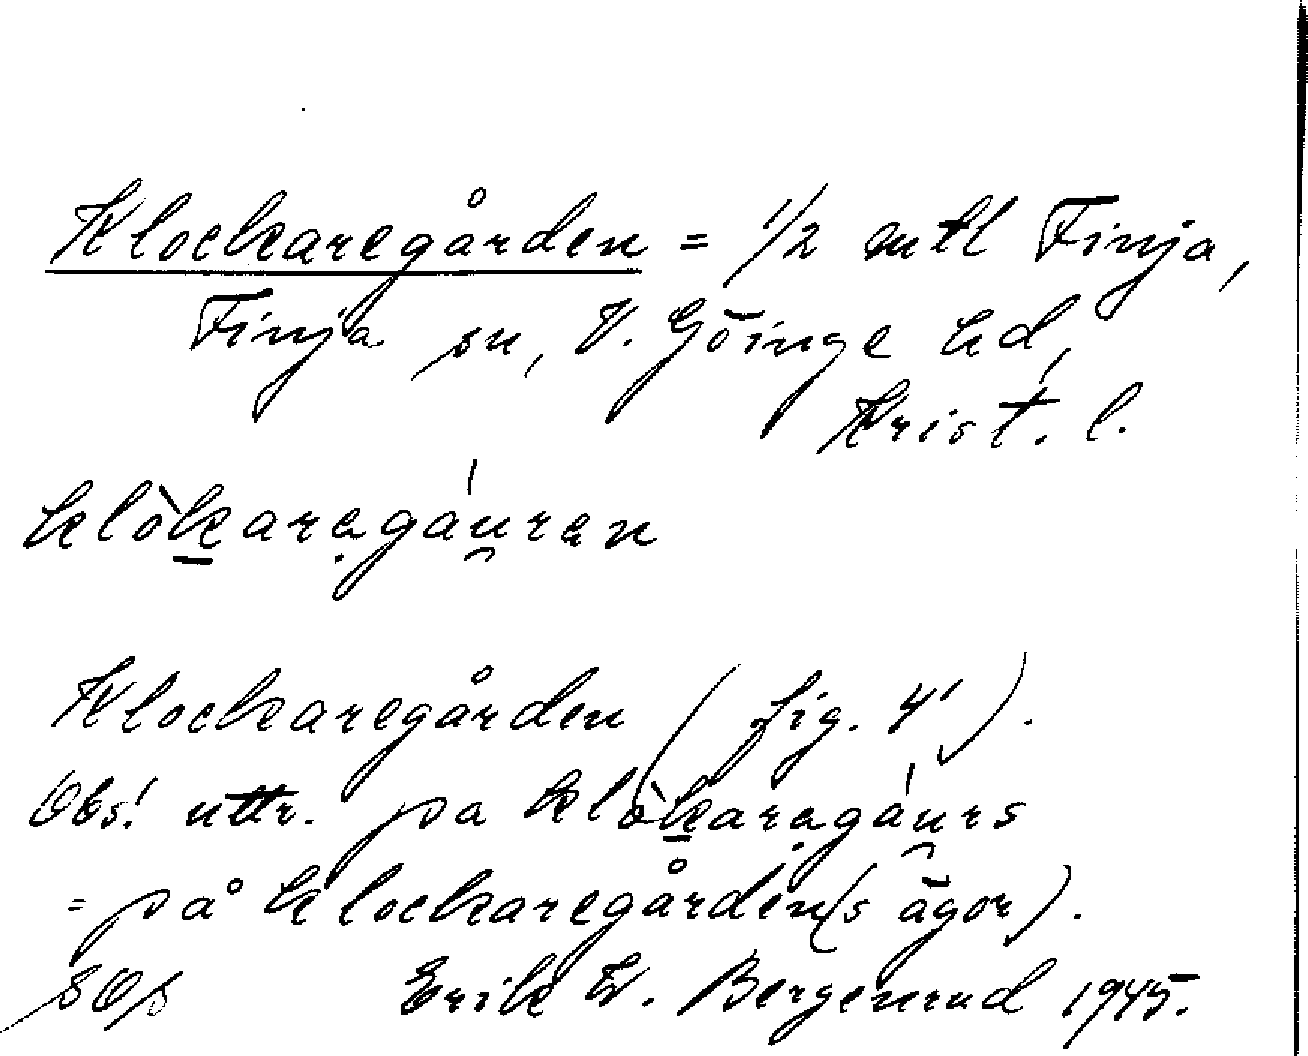 Klockaregården = 1/2 mtl Finja,
Finja sn, V. Göinge hd,
Krist. l.
klòkarəgáu̯rən
Klockaregården (fig. 4).
Obs! uttr. pa klòkarəgáu̯rs
= på klockaregården(s ägor).
SOs Erik W. Bergenrud 1945.